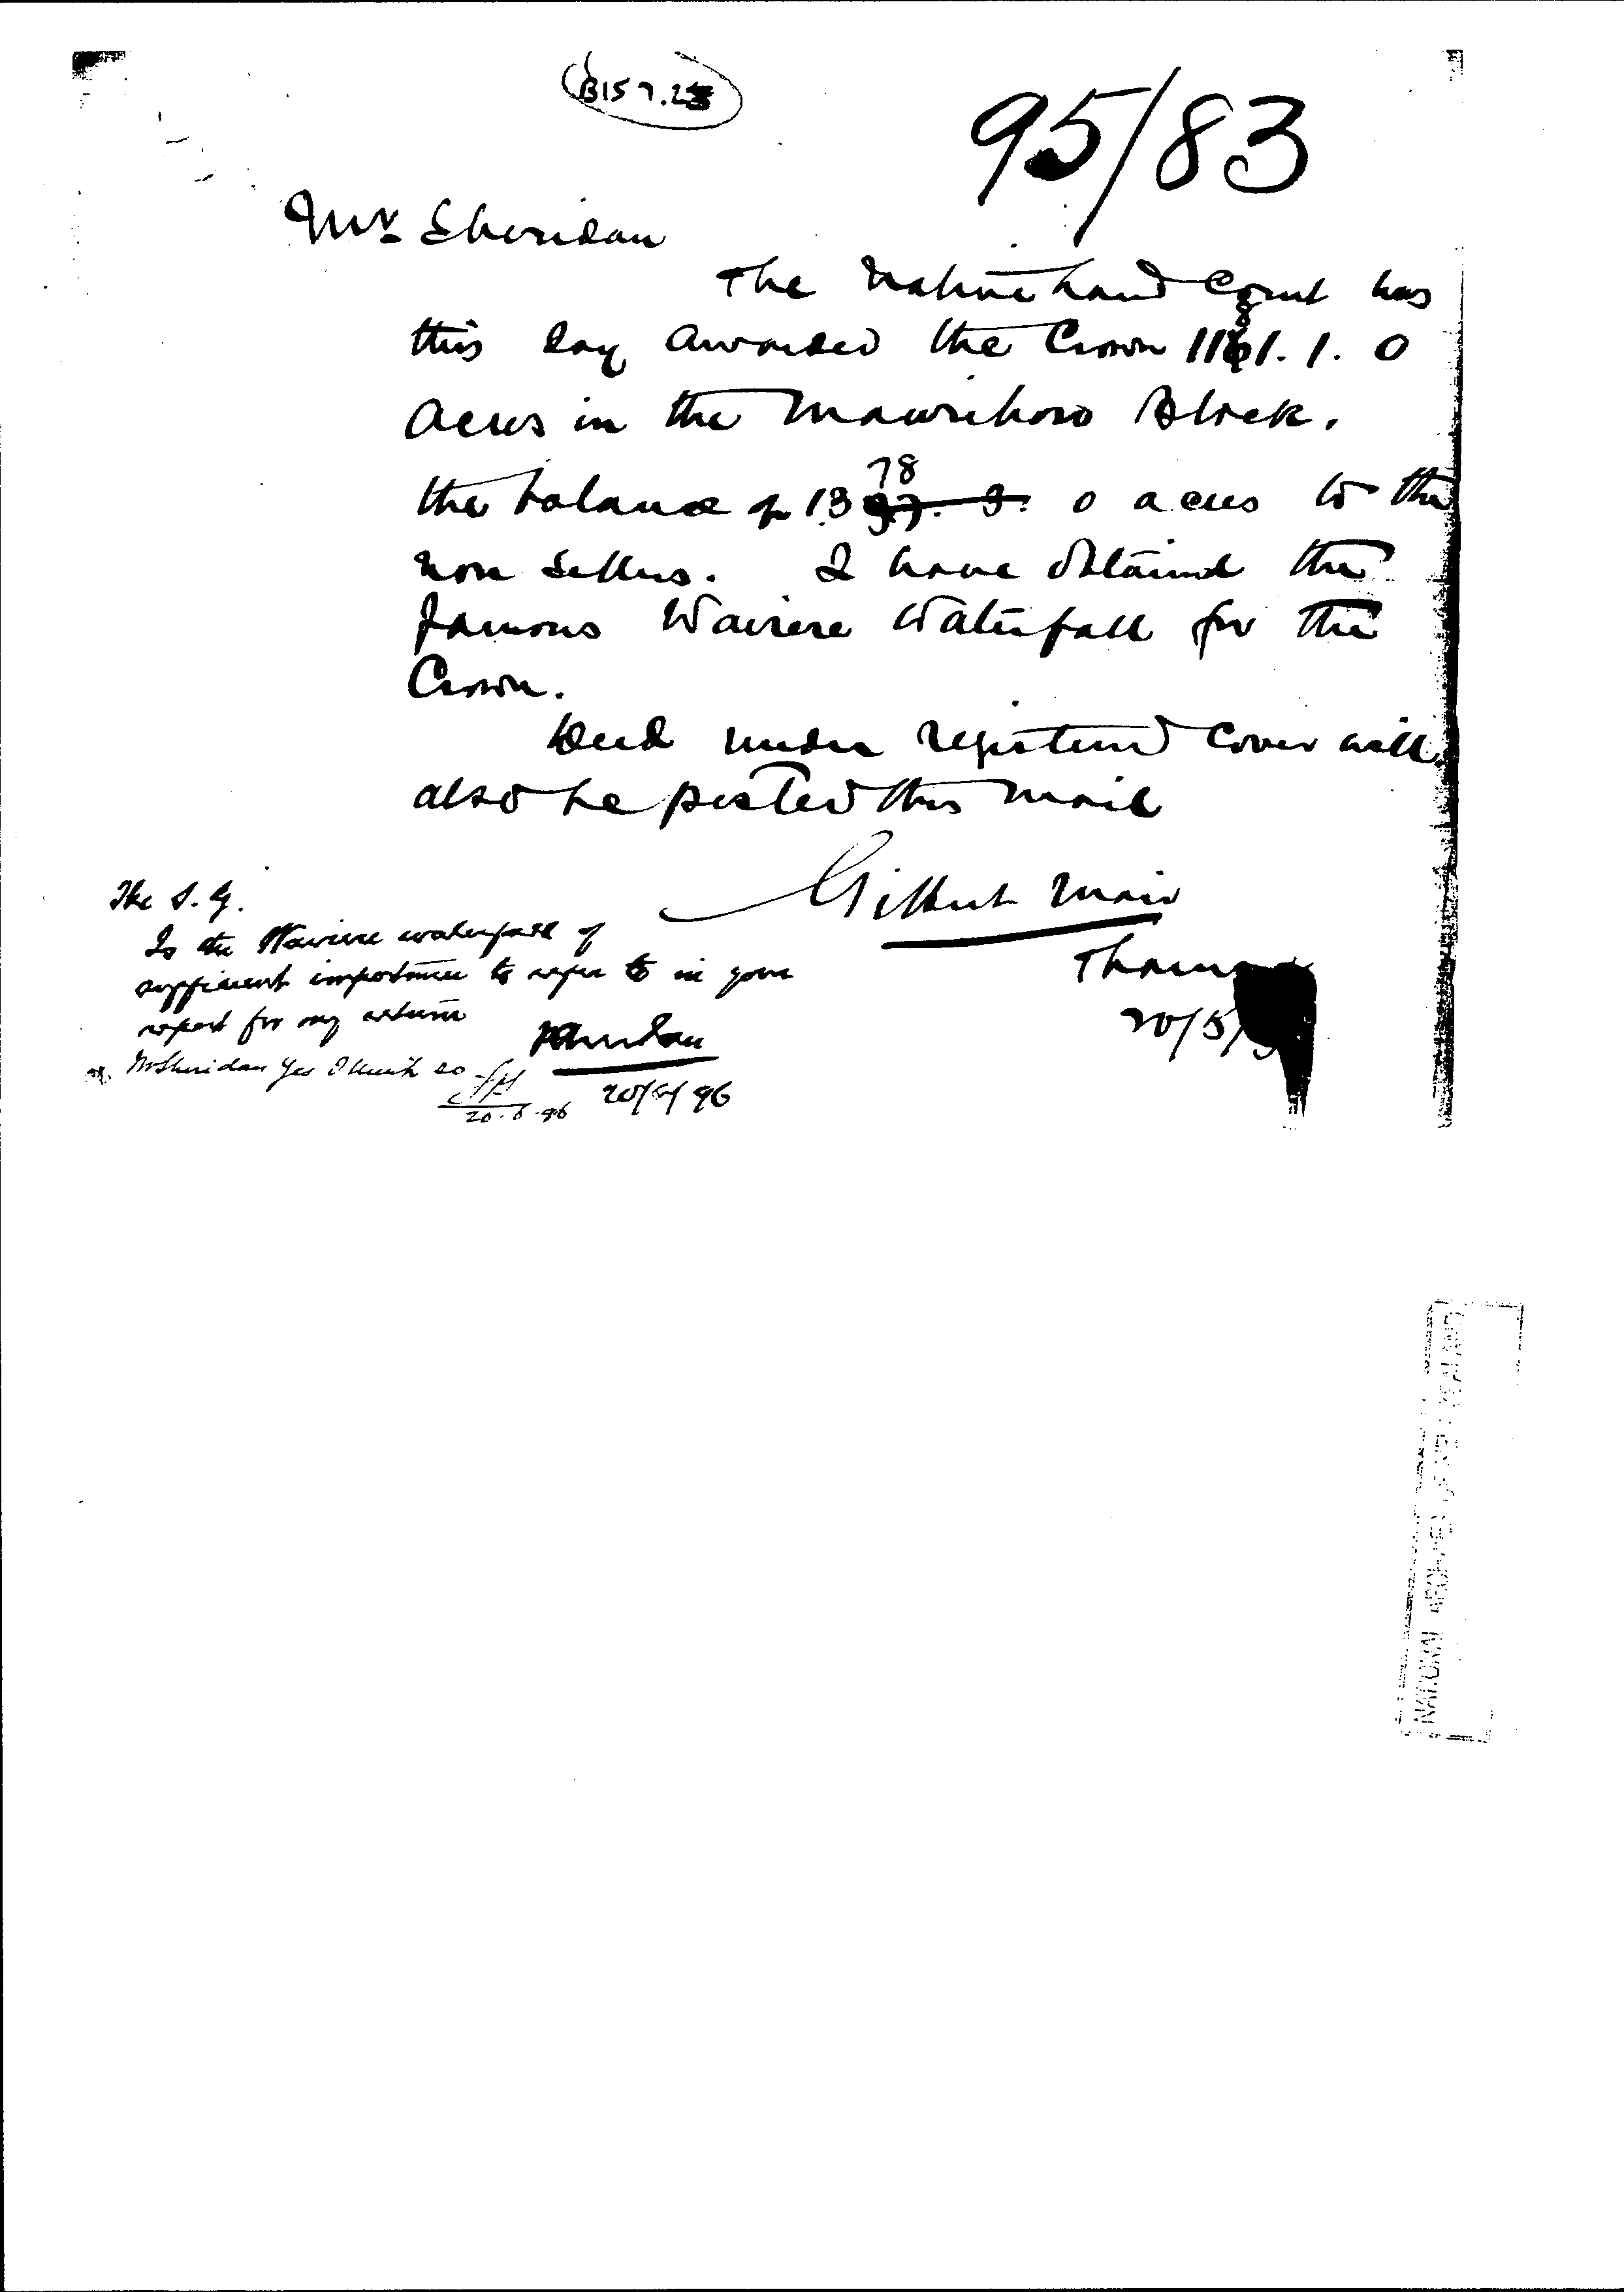 B157.23
95/83
Mr Sheridan
The Native Land Court has
this day awarded the Crown 1181. 1. 0
acres in the Maurihoro Block.
78
the balance of 13 97. 3. 0 acres to the
non sellers. I have obtained the
famous Wairere Waterfall for the
Crown.
Deed under registered cover will
also be posted this mail
Gilbert Mair
Thames
20/5/
The S. G.
Is the Wairere waterfall of
sufficient importance to refer to in your
report for my return
PSheridan
20/6/96
Mr Sheridan Yes I think so
20.6.96
NATIONAL ARCHIVES OF NEW ZEALAND